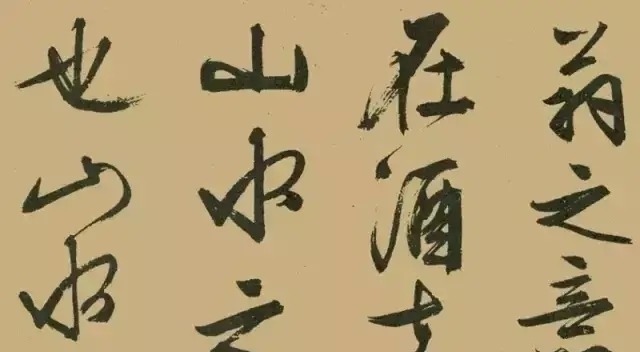 翁之意
在酒在
山水之
也山水